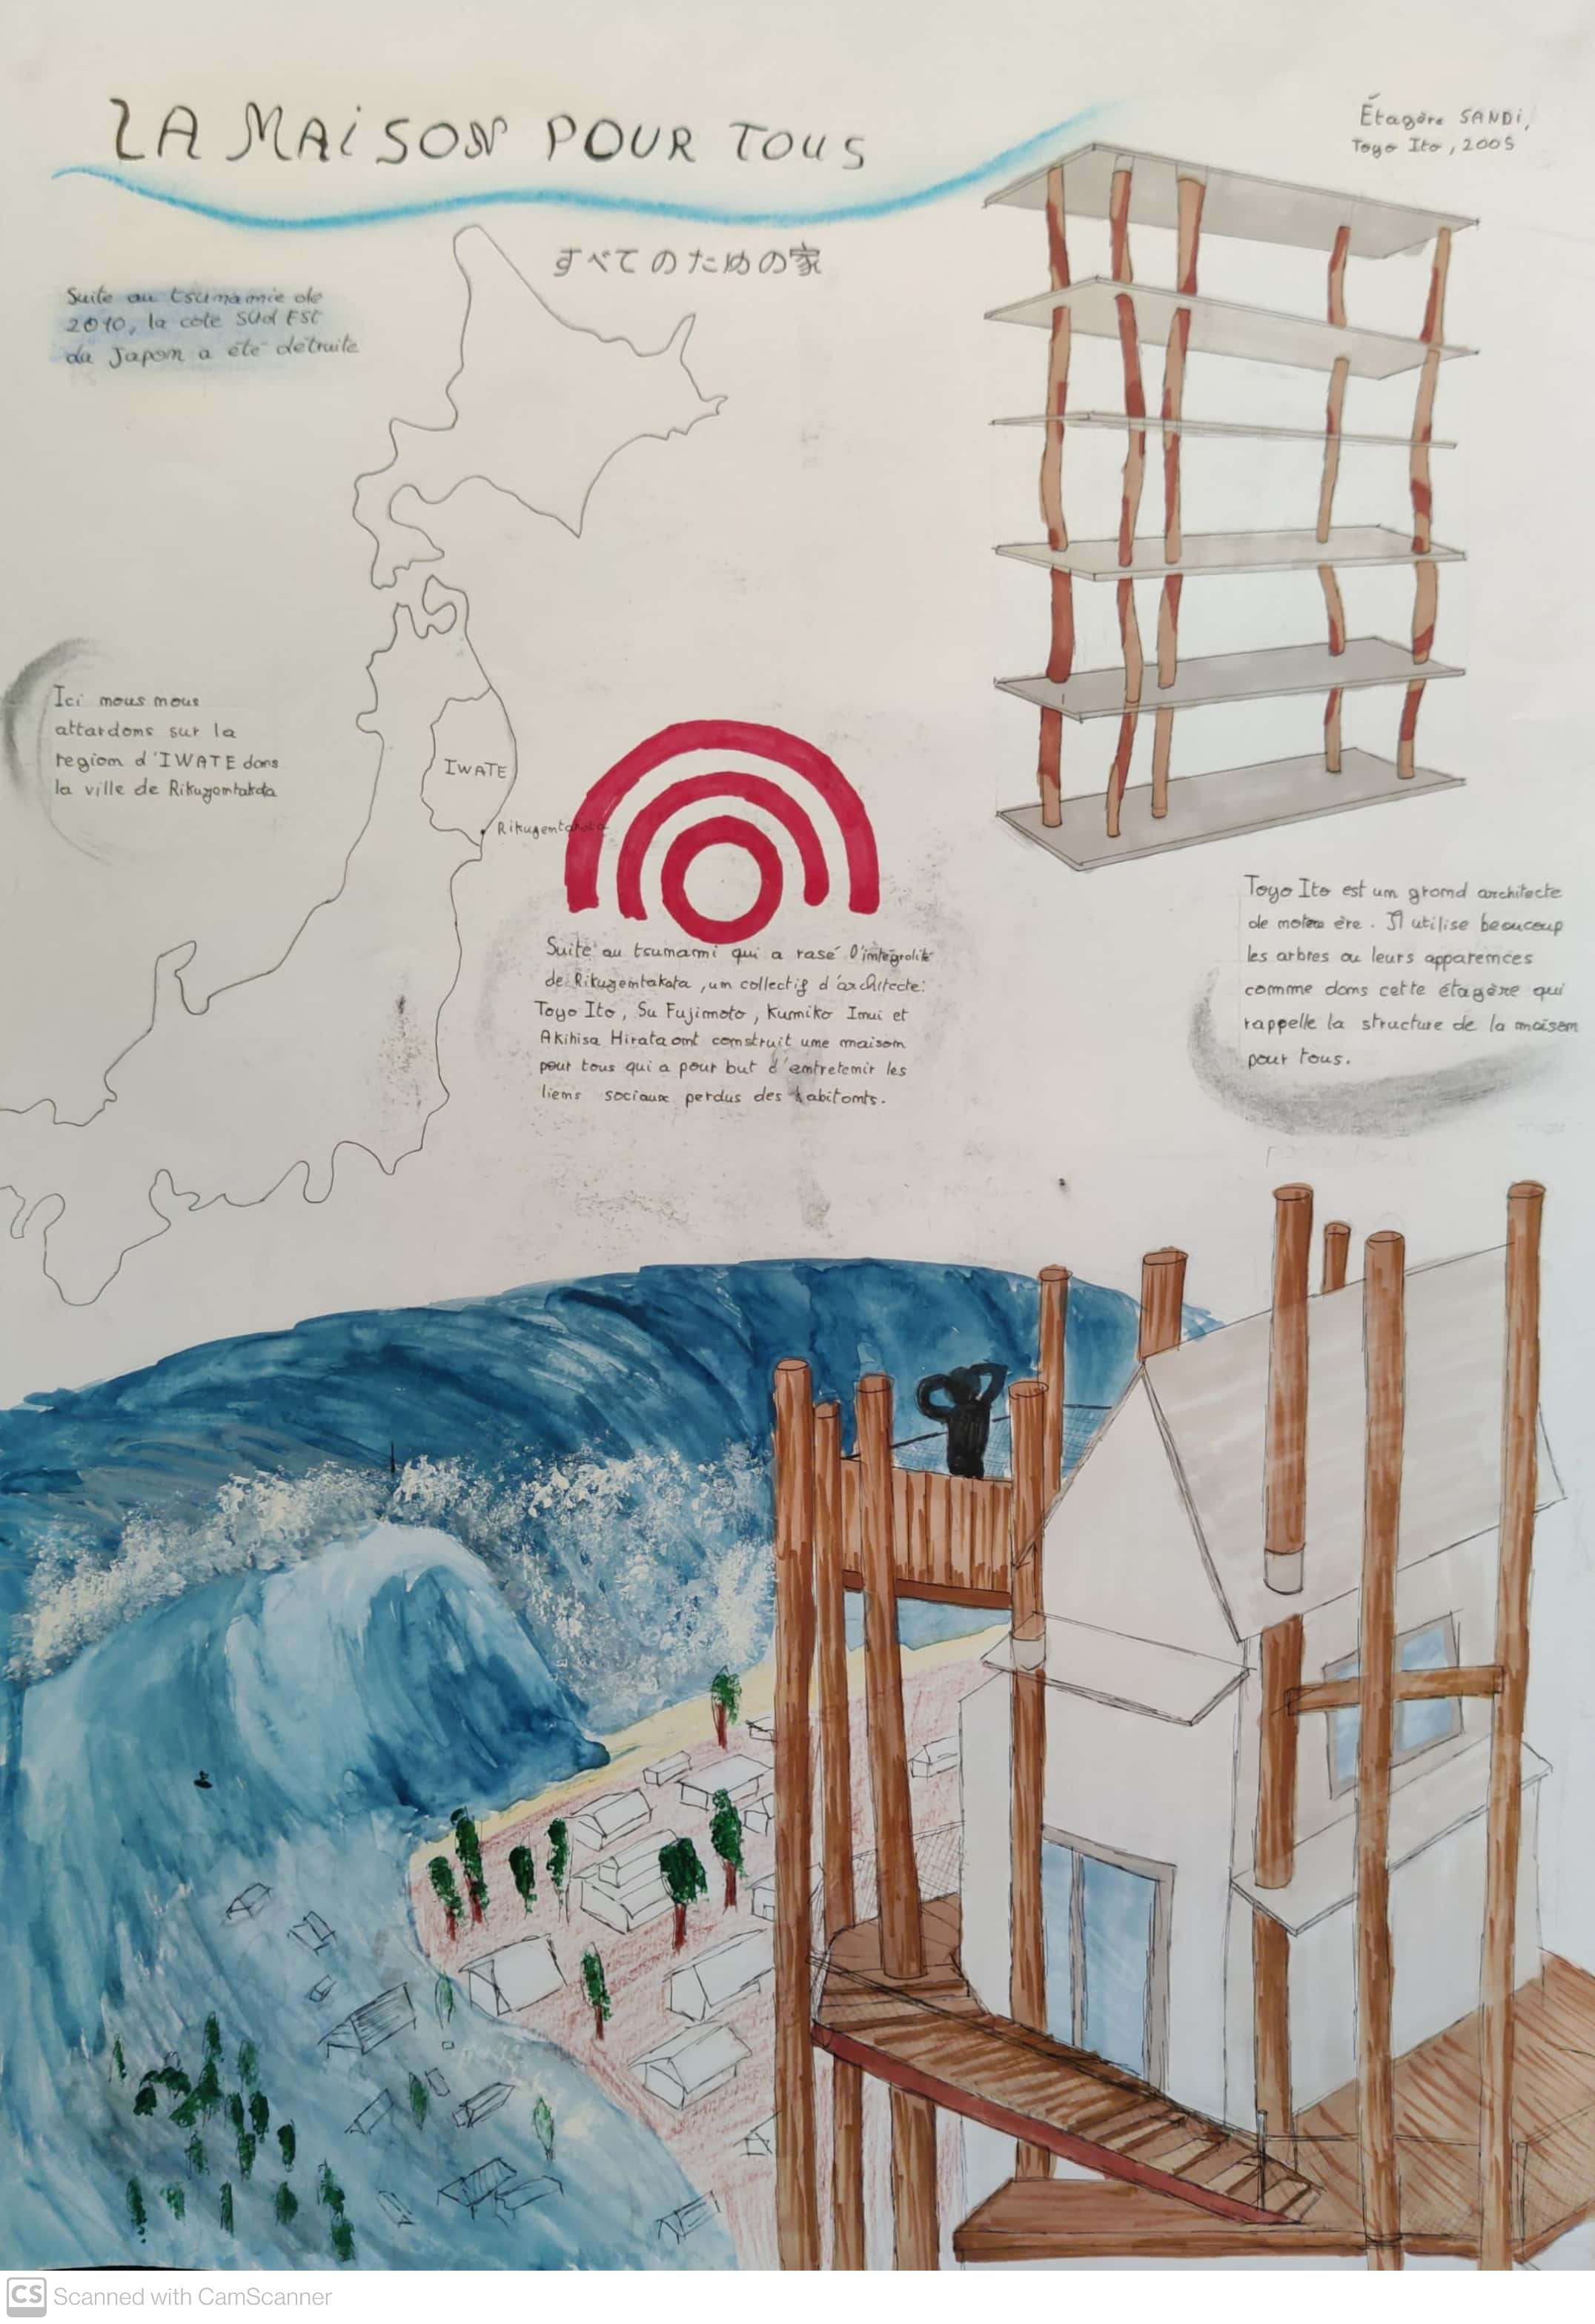 LA MAiSON POUR TOUS
すべてのための家
Étagère SANDI,
Toyo Ito, 2005
Suite au tsunamie de
2010, la côte SUd EST
du Japon a été détruite
Ici nous nous
attardons sur la
region d'IWATE dans
la ville de Rikuzentakda
IWATE
Rikuzentakata
Suite au tsunami qui a rasé l'intégralité
de Rikuzentakata, un collectif d'architecte:
Toyo Ito, Su Fujimoto, Kumiko Inui et
Akihisa Hirata ont construit une maison
pour tous qui a pour but d'entretenir les
liens sociaux perdus des habitants.
Toyo Ito est un grand architecte
de notre ère. Il utilise beaucoup
les arbres ou leurs apparences
comme dans cette étagère qui
rappelle la structure de la maison
pour tous.
CS Scanned with CamScanner